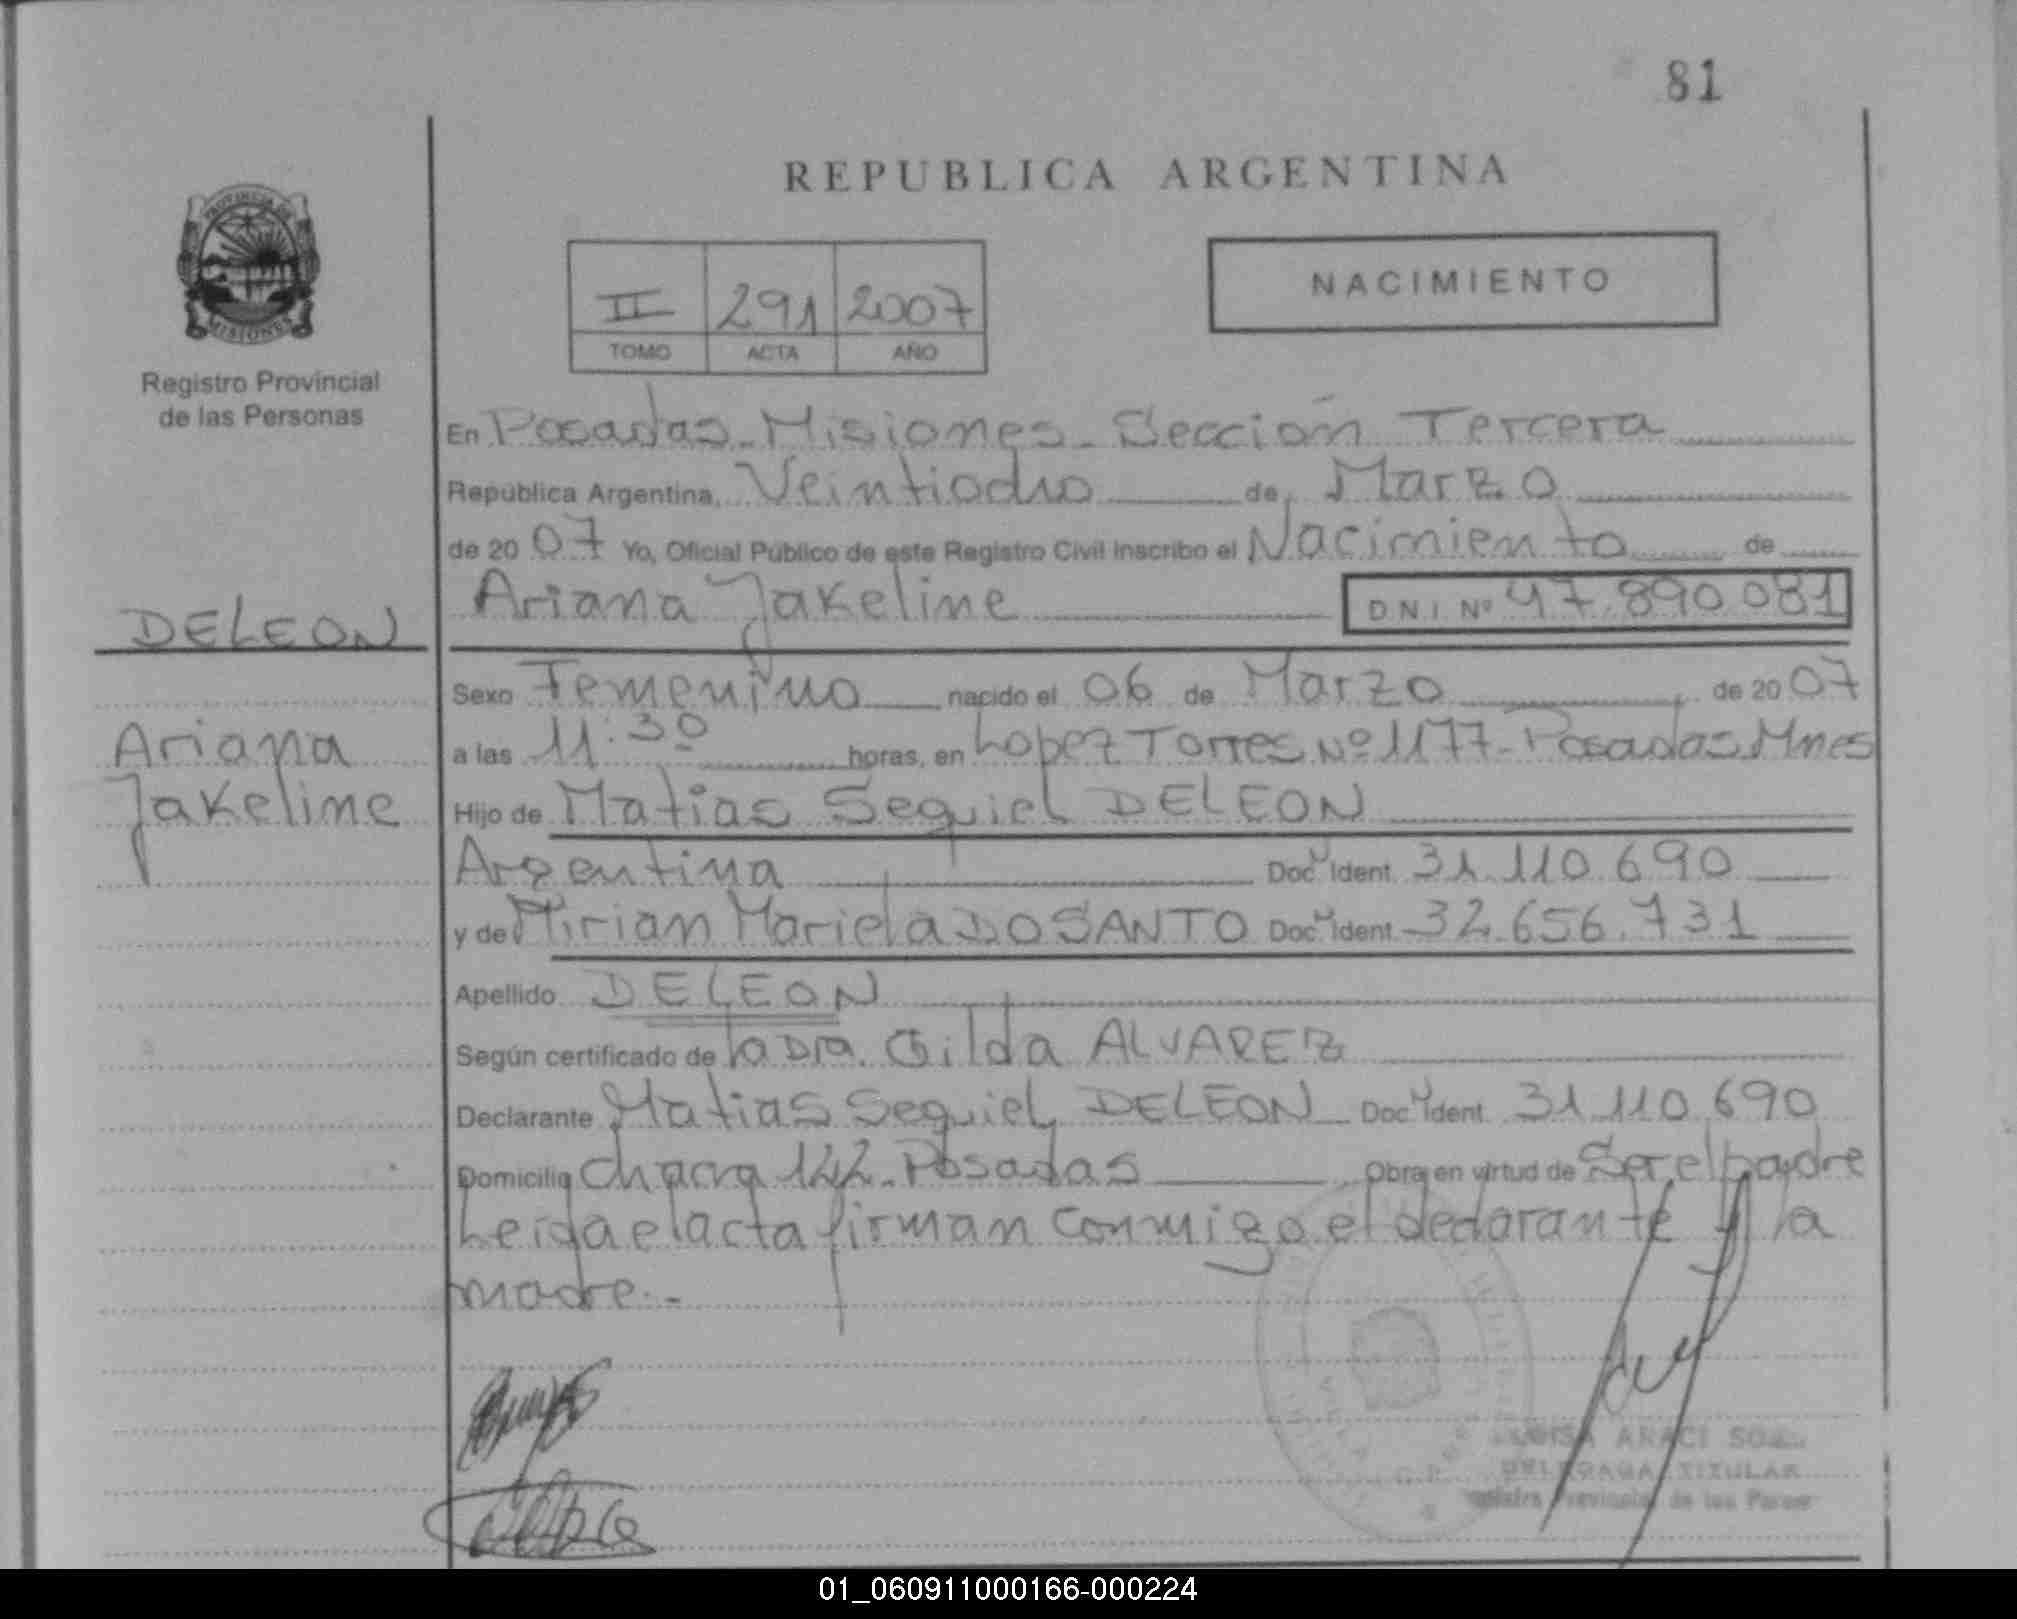 81
REPUBLICA ARGENTINA
PROVINCIA DE
MISIONES
Registro Provincial
de las Personas
II 291 2007
TOMO ACTA AÑO
NACIMIENTO
En Posadas - Misiones - Sección Tercera
República Argentina, Veintiocho de Marzo
de 20 07 Yo, Oficial Público de este Registro Civil inscribo el Nacimiento de
Ariana Jakeline D.N.I. Nº 47.890.081
DELEON
Ariana
Jakeline
Sexo Femenino nacido el 06 de Marzo de 20 07
a las 11:30 horas, en Lopez Torres Nº 1177 - Posadas Mnes
Hijo de Matias Sequiel DELEON
Argentina Doc. Ident. 31.110.690
y de Mirian Mariela DO SANTO Doc. Ident. 32.656.731
Apellido DELEON
Según certificado de la Dra. Gilda ALVAREZ
Declarante Matias Sequiel DELEON Doc. Ident. 31.110.690
Domicilio Chacra 122 - Posadas Obra en virtud de Ser el padre
Leida el acta firman conmigo el declarante y la
madre.-
ARACI
TITULAR
Provincial de las
01_060911000166-000224